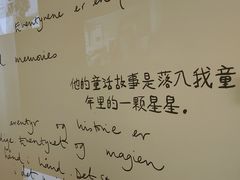 Eventyrene er e
memories
他的童话故事是落入我童
年里的一颗星星。
eventyr og historie er
Eventyret og magien
hånd i hånd. Det s
i det